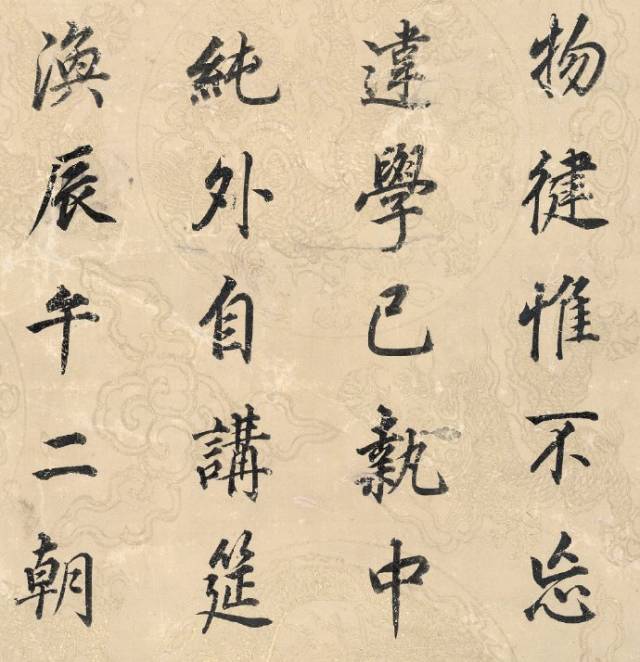 物徤惟不忘
違學已執中
純外自講筵
渙辰午二朝